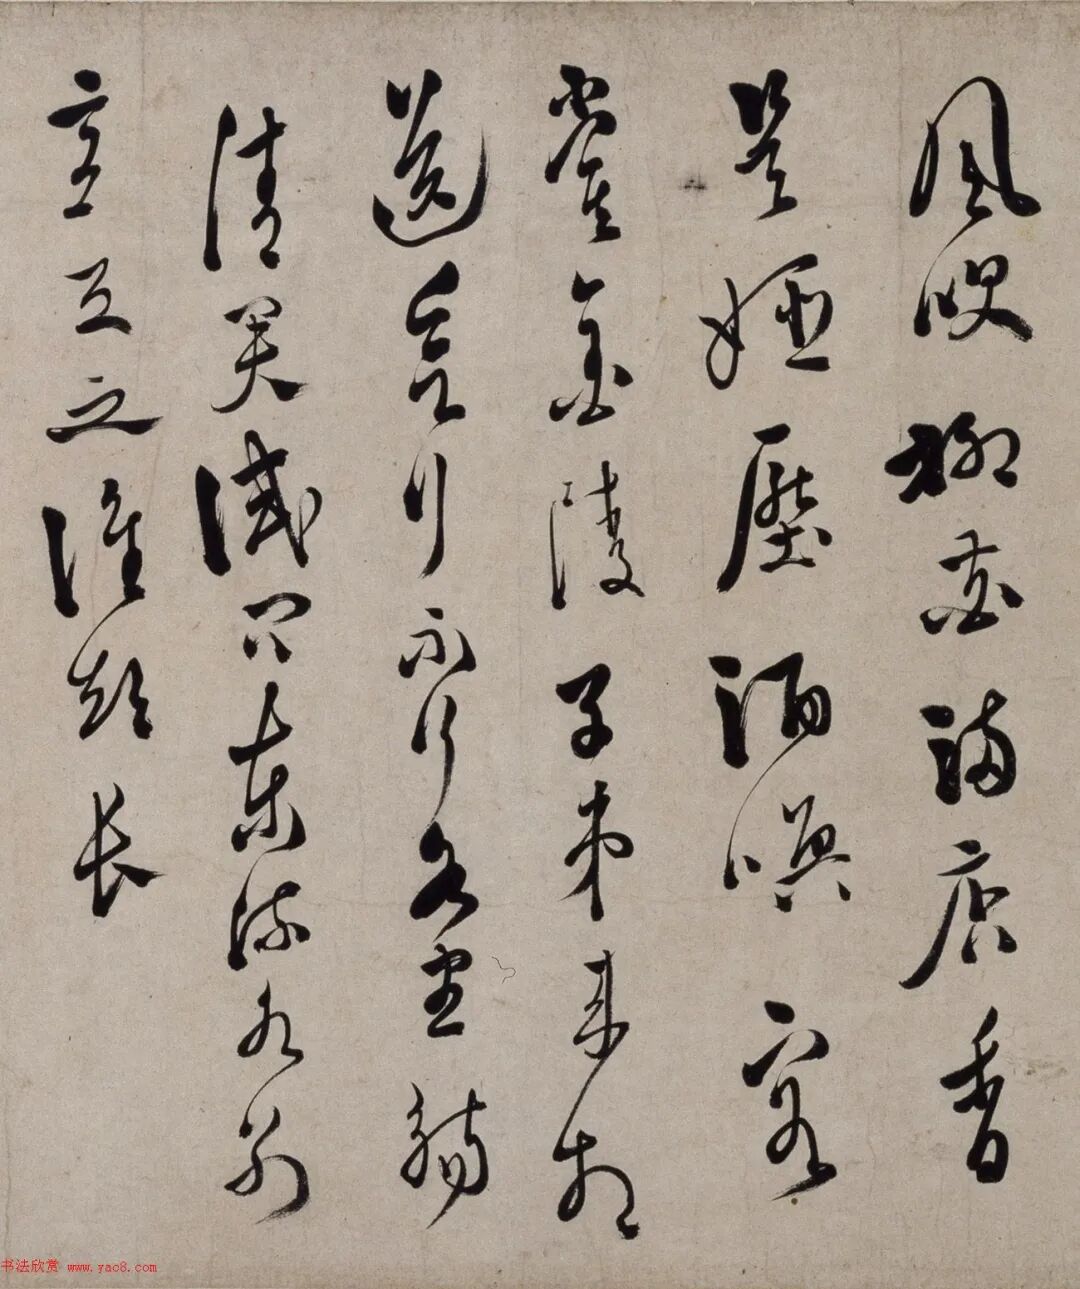 風吹柳花滿店香
吳姬壓酒喚客
嘗金陵子弟來相
送欲行不行各盡觴
請君試問東流水別
意與之誰短長
书法欣赏 www.yac8.com